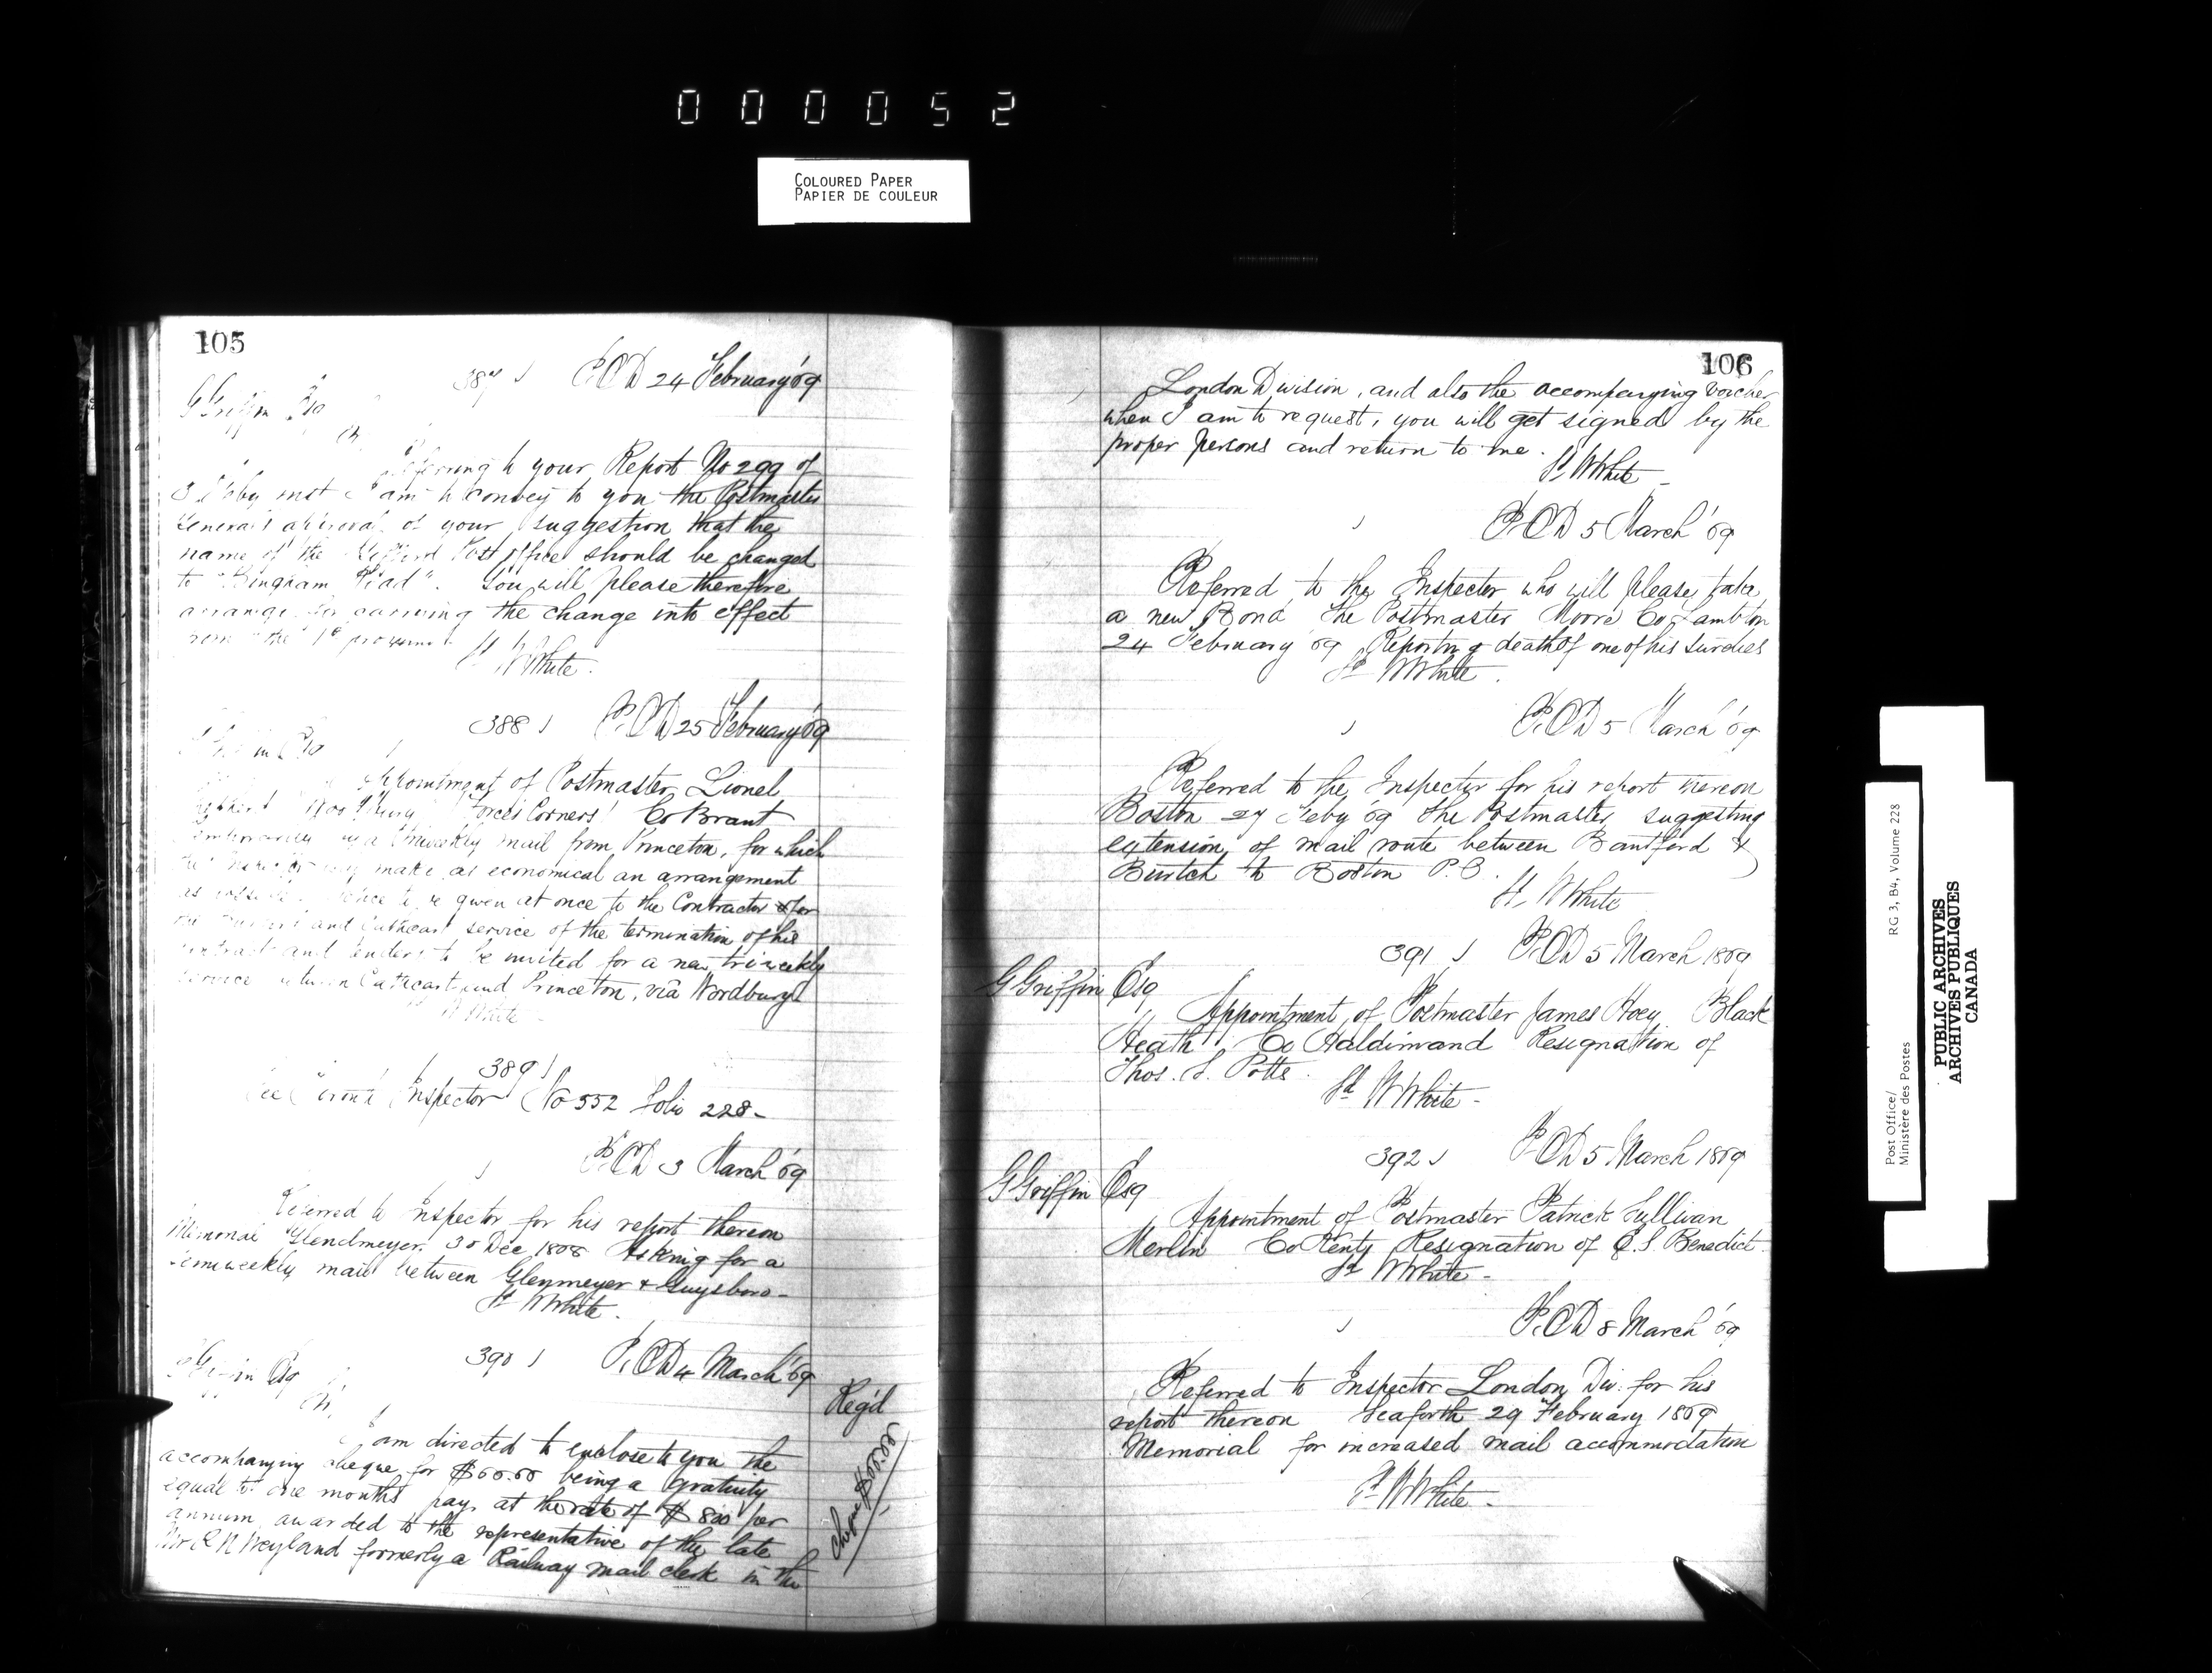 000052
COLOURED PAPER
PAPIER DE COULEUR
105
387 P.O.D 24 February '69
G Griffin Esq
Referring to your Report No 299 of
Feby inst I am to convey to you the Postmaster
General's approval of your suggestion that the
name of the Post Office should be changed
to "Bingham Road". You will please therefore
arrange for carrying the change into effect
from the 1st proximo.
Sd W White.
388 P.O.D 25 February '69
Esq
Appointment of Postmaster, Lionel
"Forces Corners" Co Brant
a triweekly mail from Princeton, for which
the Inspector may make as economical an arrangement
as possible. Notice to be given at once to the Contractor for
the and Cathcart service of the termination of his
contract and tenders to be invited for a new triweekly
service between Cathcart and Princeton, via Wordbury
W White
389
See Toronto Inspector No 552 Folio 228-
P.O.D 3 March '69
Referred to Inspector for his report thereon
Memorial Glenclmeyer. 30 Dec 1868 Asking for a
semiweekly mail between Glenmeyer & Guysboro-
Sd W White.
390 P.O.D 4 March '69
G Griffin Esq
Sir,
I am directed to enclose to you the
accompanying cheque for $66.66 being a gratuity
equal to one months pay, at the rate of $800 per
annum, awarded to the representative of the late
Mr R N Weyland formerly a Railway mail clerk in the
Reg'd
Cheque $66.66
106
London Division, and also the accompanying voucher
when I am to request, you will get signed by the
proper persons and return to me.
Sd W White -
P.O.D 5 March '69
Referred to the Inspector who will please take
a new Bond The Postmaster Moore Co Lambton
24 February '69 Reporting death of one of his sureties
Sd W White.
P.O.D 5 March '69
Referred to the Inspector for his report thereon
Boston 27 Feby '69 The Postmaster, suggesting
extension of mail route between Brantford &
Burtch to Boston P.O.
Sd W White
391 P.O.D 5 March 1869
G Griffin Esq
Appointment of Postmaster James Hoey Black
Heath Co Haldimand Resignation of
Thos. S. Potts.
Sd W White -
392 P.O.D 5 March 1869
G Griffin Esq
Appointment of Postmaster Patrick Sullivan
Merlin Co Kent, Resignation of E.S. Benedict
Sd W White -
P.O.D 8 March '69
Referred to Inspector London Div. for his
report thereon Seaforth 29 February 1869
Memorial for increased mail accommodation
Sd W White -
Post Office/ RG 3, B4, Volume 228
Ministère des Postes
PUBLIC ARCHIVES
ARCHIVES PUBLIQUES
CANADA